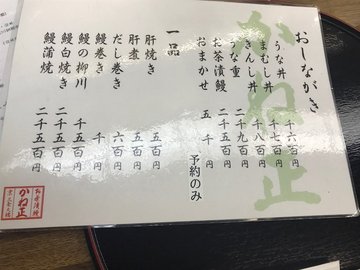 かね正
おしながき
うな丼 千六百円
まむし丼 千七百円
きんし丼 千八百円
うな重 二千九百円
お茶漬鰻 二千五百円
おまかせ 五千円 予約のみ
一品
肝焼き 五百円
肝煮 五百円
だし巻き 六百円
鰻巻き 千円
鰻の柳川 二千五百円
鰻白焼き 二千五百円
鰻蒲焼 二千五百円
お茶漬鰻
かね正